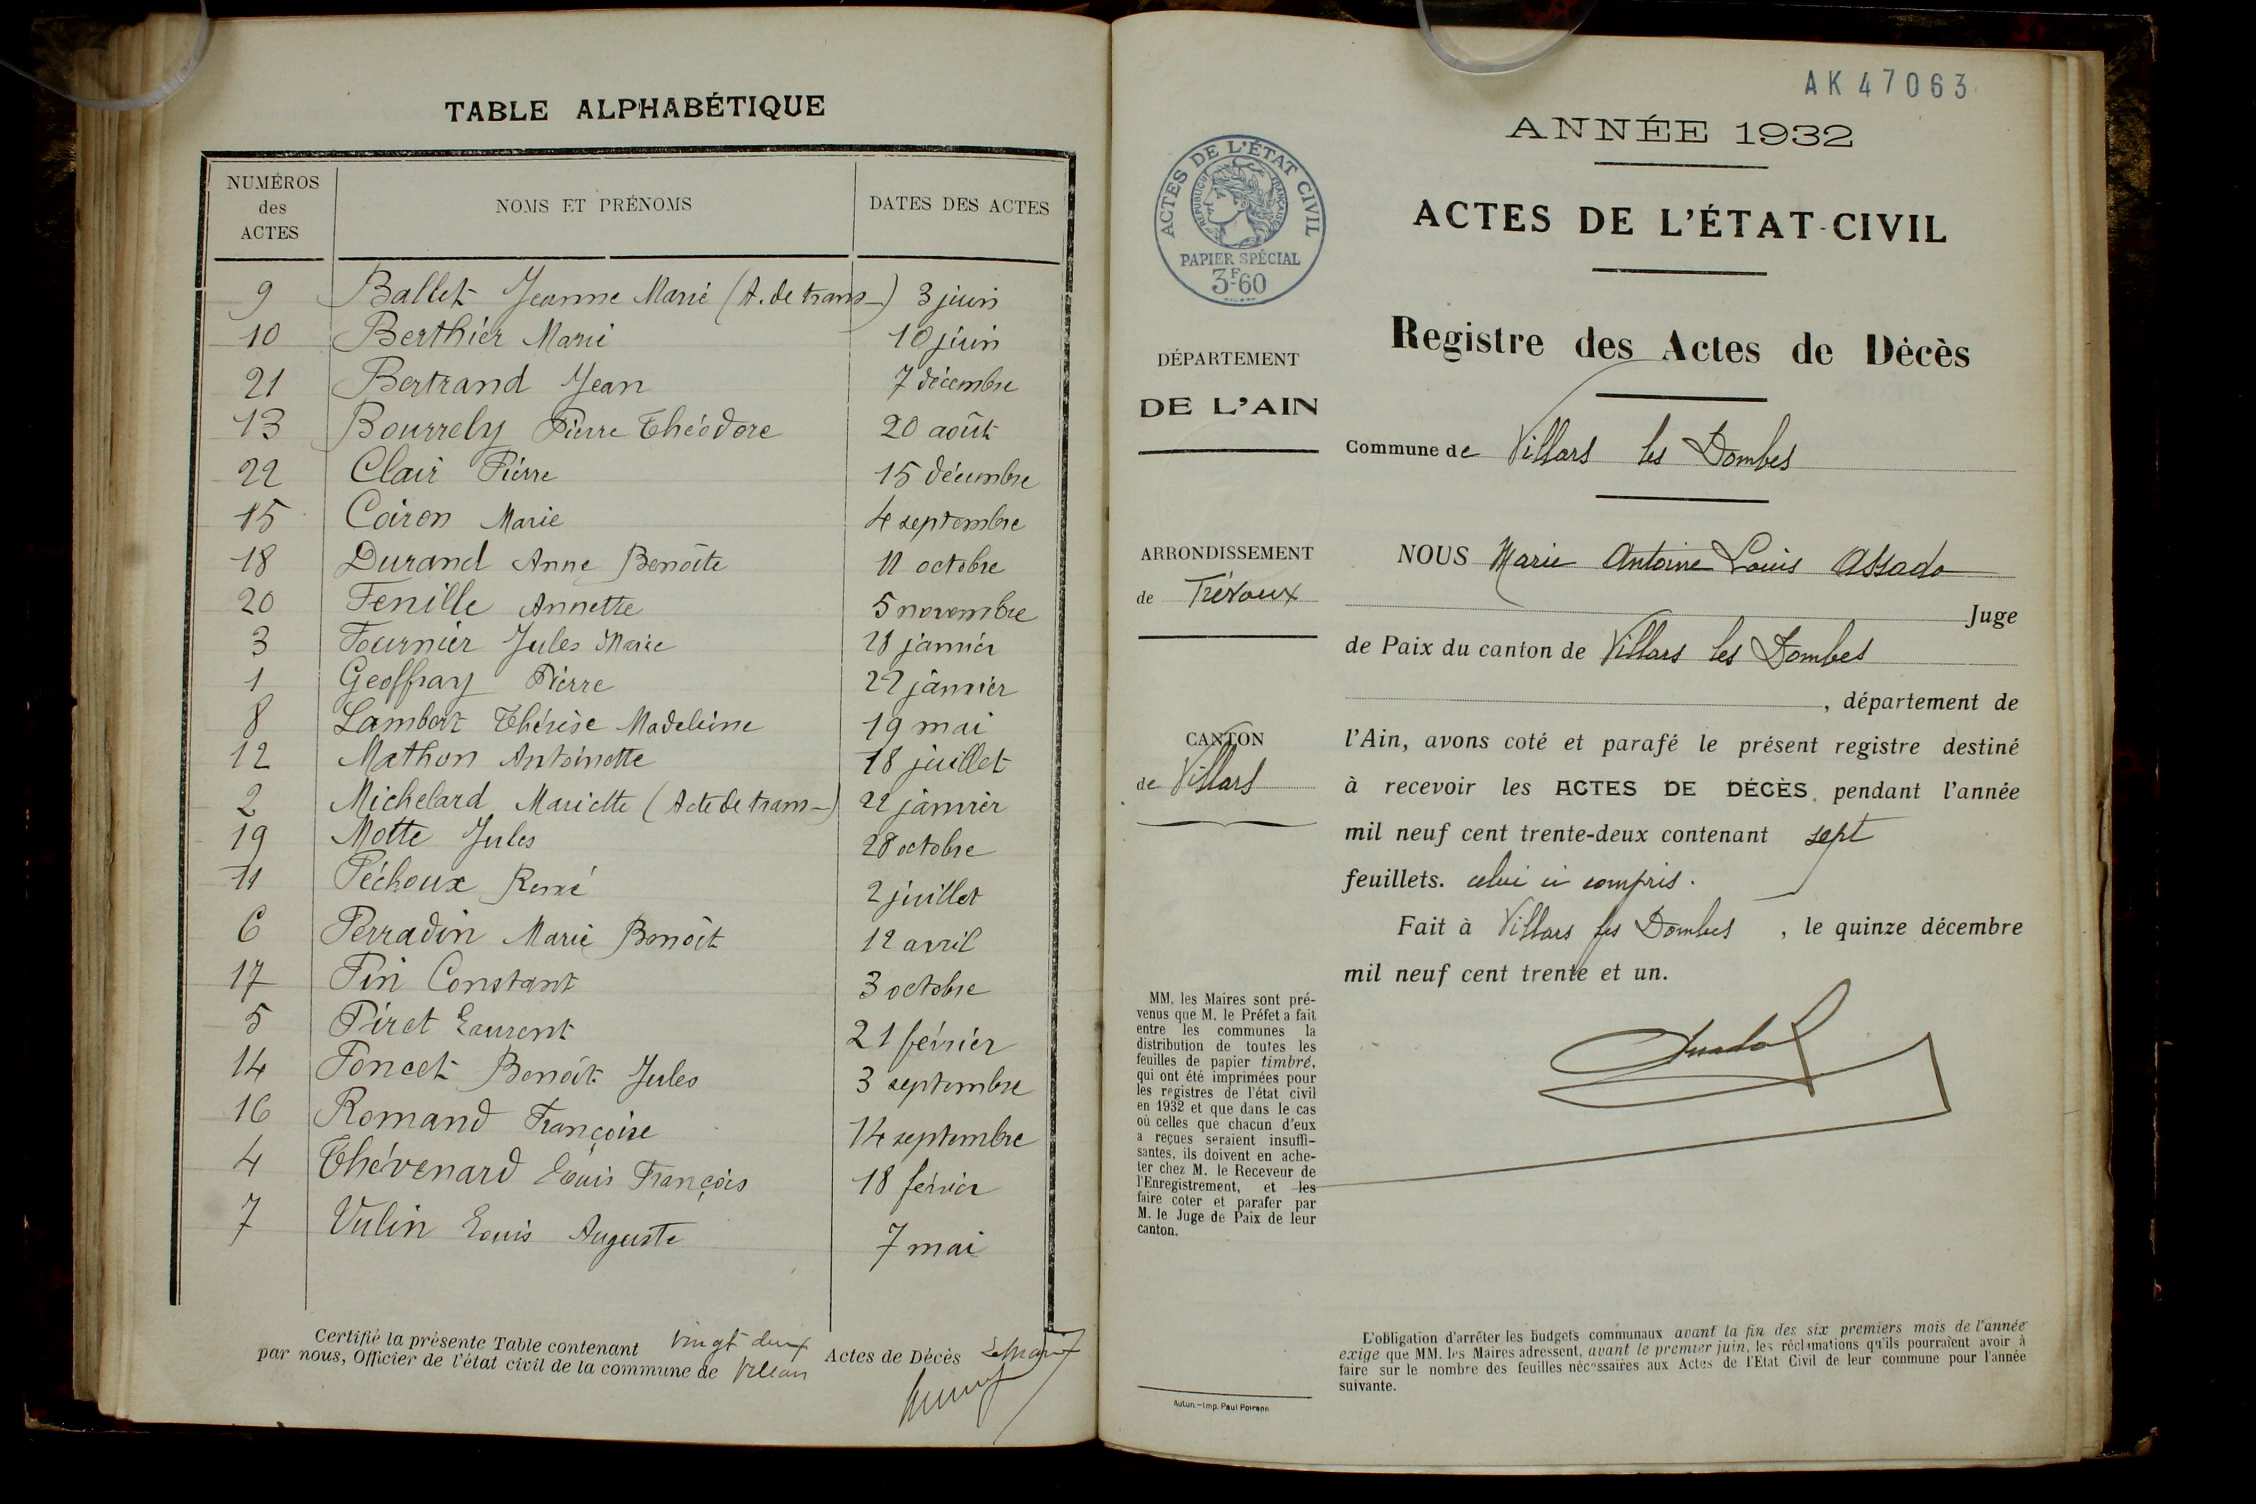 TABLE ALPHABÉTIQUE
NUMÉROS des ACTES NOMS ET PRÉNOMS DATES DES ACTES
9 Ballet Jeanne Marie (A. de trans-) 3 juin
10 Berthier Marie 10 juin
21 Bertrand Jean 7 décembre
13 Bourrely Pierre Théodore 20 août
22 Clair Pierre 15 décembre
15 Coiron Marie 4 septembre
18 Durand Anne Benoîte 11 octobre
20 Fenille Annette 5 novembre
3 Fournier Jules Marie 28 janvier
1 Geoffray Pierre 22 janvier
8 Lambert Thérèse Madeleine 19 mai
12 Mathon Antoinette 18 juillet
2 Michelard Mariette (Acte de trans-) 22 janvier
19 Motte Jules 28 octobre
11 Péchoux René 2 juillet
6 Perradin Marie Benoît 12 avril
17 Pin Constant 3 octobre
5 Piret Laurent 21 février
14 Poncet Benoît Jules 3 septembre
16 Romand Françoise 14 septembre
4 Thévenard Louis François 18 février
7 Vulin Louis Auguste 7 mai
Certifié la présente Table contenant vingt deux Actes de Décès
par nous, Officier de l'état civil de la commune de Villars
AK 47063
ANNÉE 1932
ACTES DE L'ÉTAT CIVIL
RÉPUBLIQUE FRANÇAISE
PAPIER SPÉCIAL
3F60
ACTES DE L'ÉTAT-CIVIL
Registre des Actes de Décès
DÉPARTEMENT
DE L'AIN
Commune de Villars les Dombes
ARRONDISSEMENT
de Trévoux
CANTON
de Villars
NOUS Marie Antoine Louis Assado
Juge
de Paix du canton de Villars les Dombes
, département de
l'Ain, avons coté et parafé le présent registre destiné
à recevoir les ACTES DE DÉCÈS pendant l'année
mil neuf cent trente-deux contenant sept
feuillets. celui ci compris.
Fait à Villars les Dombes, le quinze décembre
mil neuf cent trente et un.
MM. les Maires sont pré-
venus que M. le Préfet a fait
entre les communes la
distribution de toutes les
feuilles de papier timbré,
qui ont été imprimées pour
les registres de l'état civil
en 1932 et que dans le cas
où celles que chacun d'eux
a reçues seraient insuffi-
santes, ils doivent en ache-
ter chez M. le Receveur de
l'Enregistrement, et les
faire coter et parafer par
M. le Juge de Paix de leur
canton.
Autun.-Imp. Paul Poirson
L'obligation d'arrêter les budgets communaux avant la fin des six premiers mois de l'année
exige que MM. les Maires adressent, avant le premier juin, les réclamations qu'ils pourraient avoir à
faire sur le nombre des feuilles nécessaires aux Actes de l'Etat Civil de leur commune pour l'année
suivante.